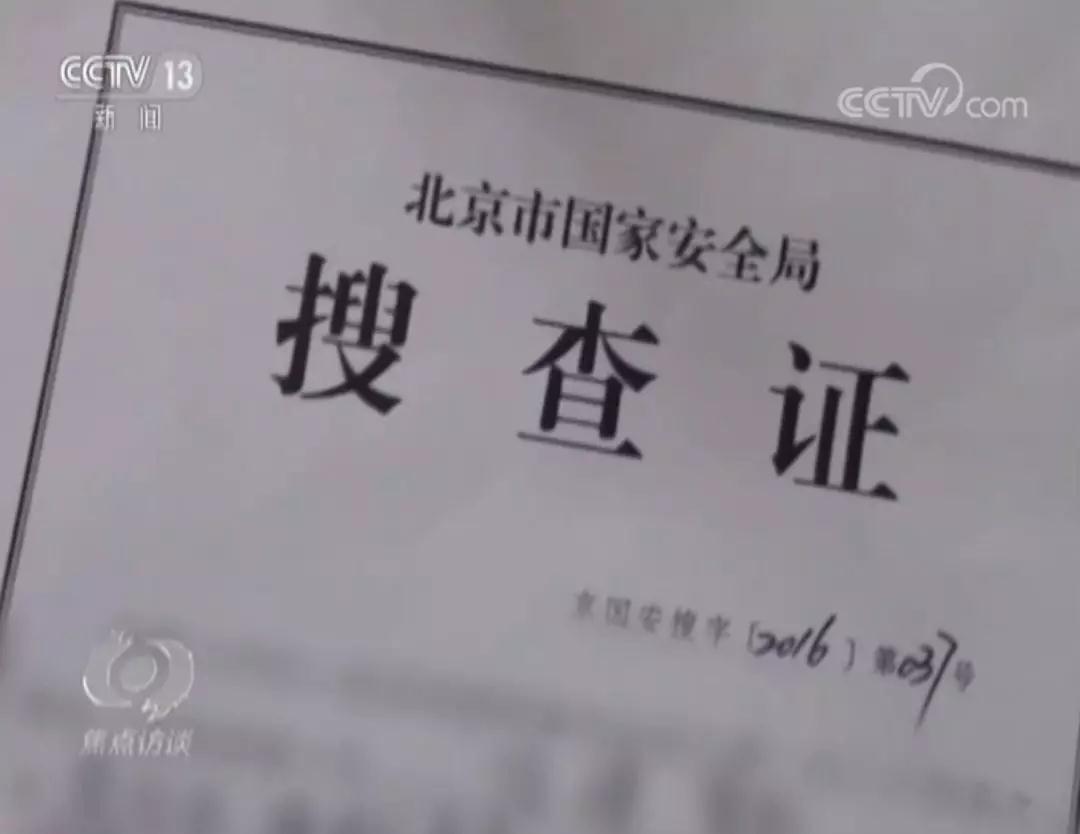 CCTV 13
新闻
CCTV.com
北京市国家安全局
搜查证
京国安搜字〔2016〕第037号
焦点访谈